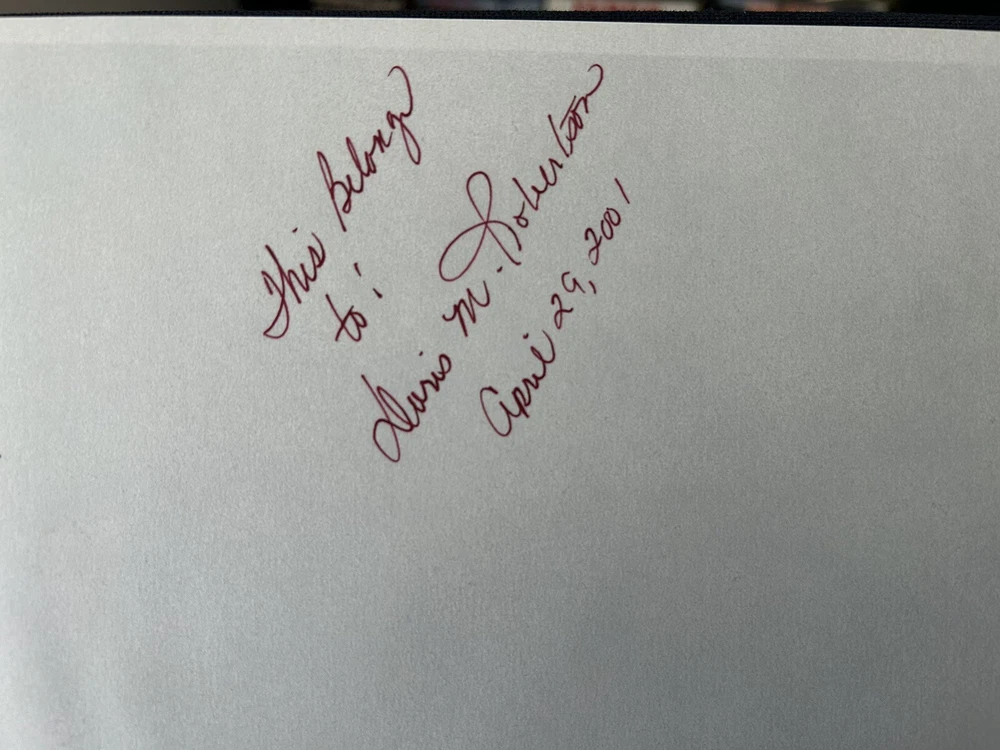 This Belongs
to:
Doris M. Robertson
April 29, 2001